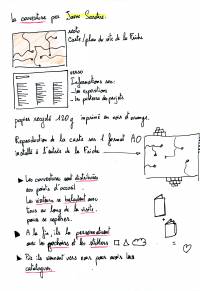 La couverture par Jaune Sardine.
recto
Carte/plan du site de la Friche
verso
Informations sur:
- les expositions
- les porteurs de projets
papier recyclé 120g imprimé en noir et orange.
Reproduction de la carte sur 1 format A0
installé à l'entrée de la Friche
► Les couvertures sont distribuées
aux points d'accueil.
Les visiteurs se baladent avec
tous au long de la visite.
pour se repérer.
► A la fin, ils la personnalisent
avec les pochoirs et les stickers
► Puis ils viennent vers nous pour avoir leur
catalogue.